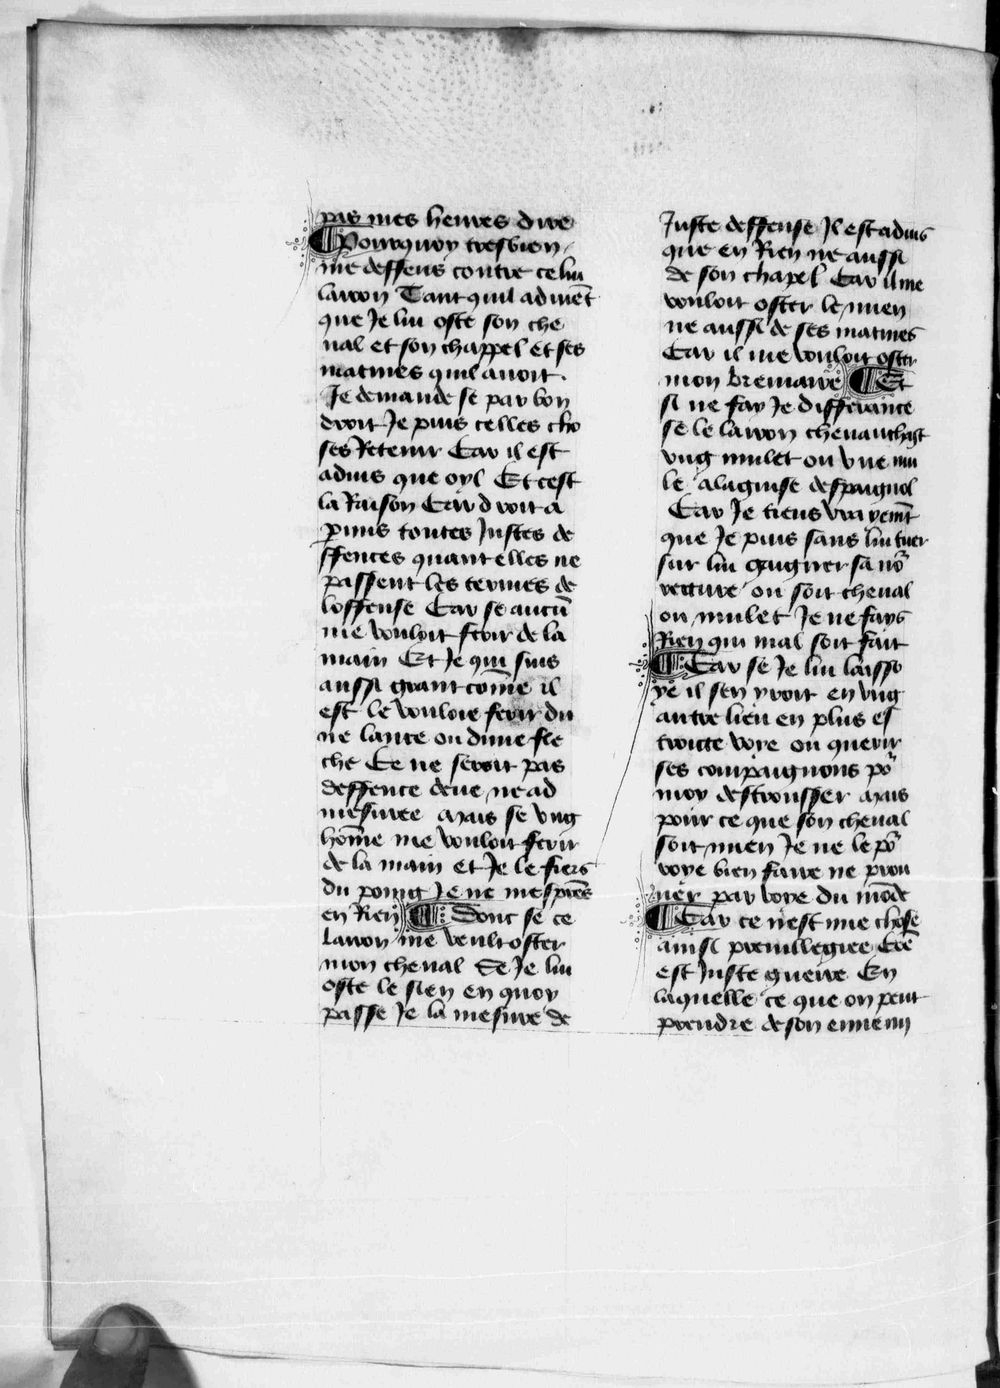 pas mes heures dire
Pourquoy tresbien
me deffens contre celui
larron Tant quil aduient
que Je lui oste son che
ual et son chappel et ses
matines quil auoit.
Je demande se par bon
droit Je puis celles cho
ses Retenir Car il est
aduis que oyl Et cest
la Raison Car droit a
permis toutes Justes de
ffences quant elles ne
passent les termes de
loffense Car se aucū
me vouloit ferir de la
main Et Je qui suis
aussi grant come il
est le vouloie ferir du
ne lance ou dune fle
che Ce ne seroit pas
deffence deue ne ad
mesuree Mais se vng
home me vouloit ferir
de la main et Je le fiers
du poing Je ne mesprēs
en Rien Donc se ce
larron me veult oster
mon cheual Se Je lui
oste le sien en quoy
passe Je la mesure de
Juste deffense Il est aduis
que en Rien ne aussi
de son chapel Car il me
vouloit oster le mien
ne aussi de ses matines
Car il me vouloit oster
mon breuiaire Et
si ne fay Je differance
se le larron cheuauchast
vng mulet ou vne mu
le a la guise despaignol
Car Je tiens vrayemēt
que Je puis sans lui tuer
sur lui gaigner sa
vecture ou soit cheual
ou mulet Je ne fays
Rien qui mal soit fait
Car se Je lui laisso
ye il sen yroit en vng
autre lieu en plus es
troitte voye ou querir
ses compaignons po
moy destrousser Mais
pour ce que son cheual
soit mien Je ne le po
roye bien faire ne prou
uer par voye du mōde
Car ce nest mie chose
ainsi preuillegiee Cōe
est Juste guerre En
laquelle ce que on peut
prendre de son ennemy